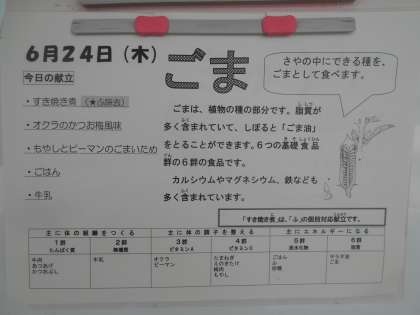 6月24日（木）
ごま
さやの中にできる種を、
ごまとして食べます。
今日の献立
・すき焼き煮（★ふ除去）
・オクラのかつお梅風味
・もやしとピーマンのごまいため
・ごはん
・牛乳
ごまは、植物の種の部分です。脂質が
多く含まれていて、しぼると「ごま油」
をとることができます。6つの基礎食品
群の6群の食品です。
カルシウムやマグネシウム、鉄なども
多く含まれています。
「すき焼き煮」は、「ふ」の個別対応献立です。
主に体の組織をつくる 主に体の調子を整える 主にエネルギーになる
1群 2群 3群 4群 5群 6群
たんぱく質 無機質 ビタミンA ビタミンC 炭水化物 脂質
牛肉 牛乳 オクラ たまねぎ ごはん サラダ油
あつあげ ピーマン えのきたけ ふ ごま
かつおぶし 梅肉 砂糖
もやし